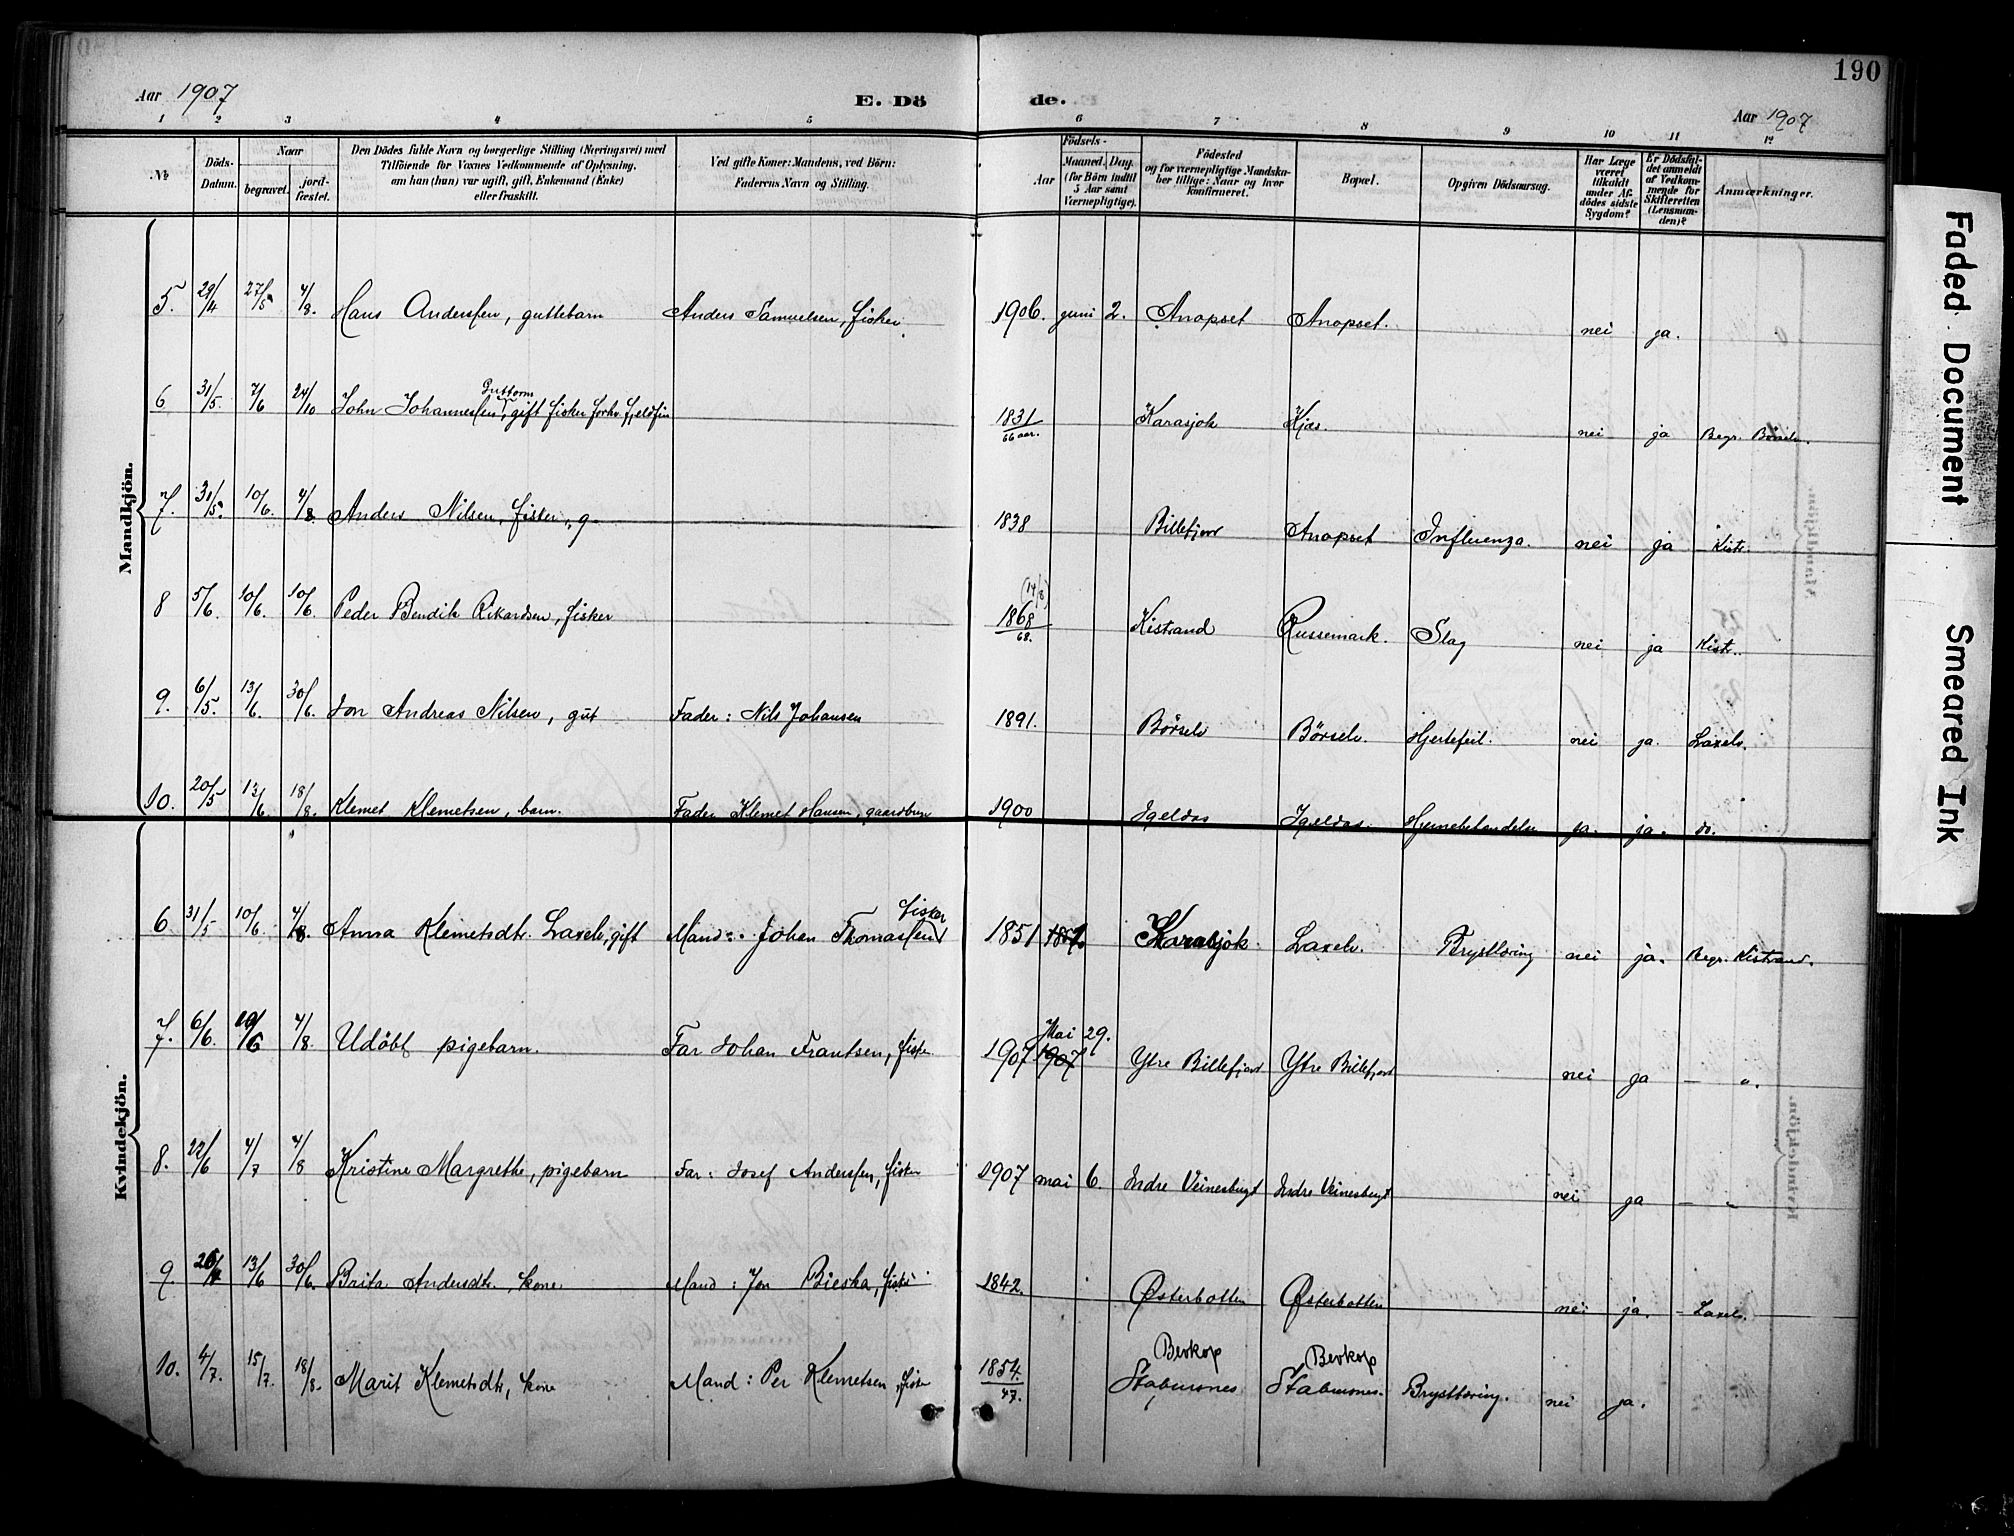 190
Aar 1907
E. Dö
de.
Aar 1907
1 2 3 4 5 6 7 8 9 10 11 12
No
Döds-Datum.
Naar
begravet.
jord-fæstet.
Den Dödes fulde Navn og borgerlige Stilling (Næringsvei) med
Tilföiende for Voxnes Vedkommende af Oplysning,
om han (hun) var ugift, gift, Enkemand (Enke)
eller fraskilt.
Ved gifte Koner: Mandens, ved Börn:
Faderens Navn og Stilling.
Födsels-
Aar
Maaned. Dag.
(for Börn indtil
5 Aar samt
Værnepligtige).
Födested
og for værnepligtige Mandska-
ber tillige: Naar og hvor
konfirmeret.
Bopæl.
Opgiven Dödsaarsag.
Har Læge
været
tilkaldt
under Af-
dödes sidste
Sygdom?
Er Dödsfal-
det anmeldt
af Vedkom-
mende for
Skifteretten
(Lensman-
den)?
Anmærkninger.
Mandkjön.
5. 29/4 27/5 4/8. Hans Anderssen, guttebarn Anders Samuelsen, fisker. 1906. juni 2. Anopset Anopset. nei ja.
Guttorm
6 31/5. 7/6 24/10 John Johannessen, gift fisker forhv. fjeldfin 1831/66 aar. Karasjok Kjæs nei ja Begr. Börselv.
7. 31/5. 10/6. 4/8. Anders Nilsen, fisker, g. 1838 Billefjord Anopset Influenza. nei ja Kistr.
(14/8)
8 5/6. 10/6. 10/6 Peder Bendik Rikardsen, fisker 1868/68. Kistrand Russemark. Slag nei ja Kistr..
9. 6/5. 13/6. 30/6. Jon Andreas Nilsen, gut Fader: Nils Johansen 1891. Börselv Börselv. Hjertefeil. nei ja. Laxelv.
10. 20/5 13/6. 18/8. Klemet Klemetsen, barn. Fader Klemet Hansen, gaardbrug 1900 Igeldas Igeldas. Hjernebetændelse ja. ja. do.
Kvindekjön.
fisker
6 31/5 10/6. 4/8. Anna Klemetsdtr. Laxelv, gift Mand: Johan Thomassen 1851 Karasjok. Laxelv. Brysttæring nei ja. Begr. Kistrand.
Mai 29.
7. 6/6. 10/6 4/8. Udöbt pigebarn. Far Johan Frantsen, fisker 1907 1907 Ytre Billefjord Ytre Billefjord nei ja — ".
8. 22/6 4/7 4/8 Kristine Margrethe, pigebarn Far: Josef Anderssen, fisker 1907 mai 6. Indre Veinesbugt Indre Veinesbugt nei ja — "
9. 13/6 30/6. Brita Andersdtr. kone Mand: Jon Bieska, fisker 1842. Østerbotten Østerbotten nei ja. - Laxelv.
Bevkop Bevkop
10. 4/7. 15/7. 18/8. Marit Klemetsdtr, kone Mand: Per Klemetsen, fisker 1854./47. Stabursnes Stabursnes. Brysttæring. nei ja.
Faded Document
Smeared Ink